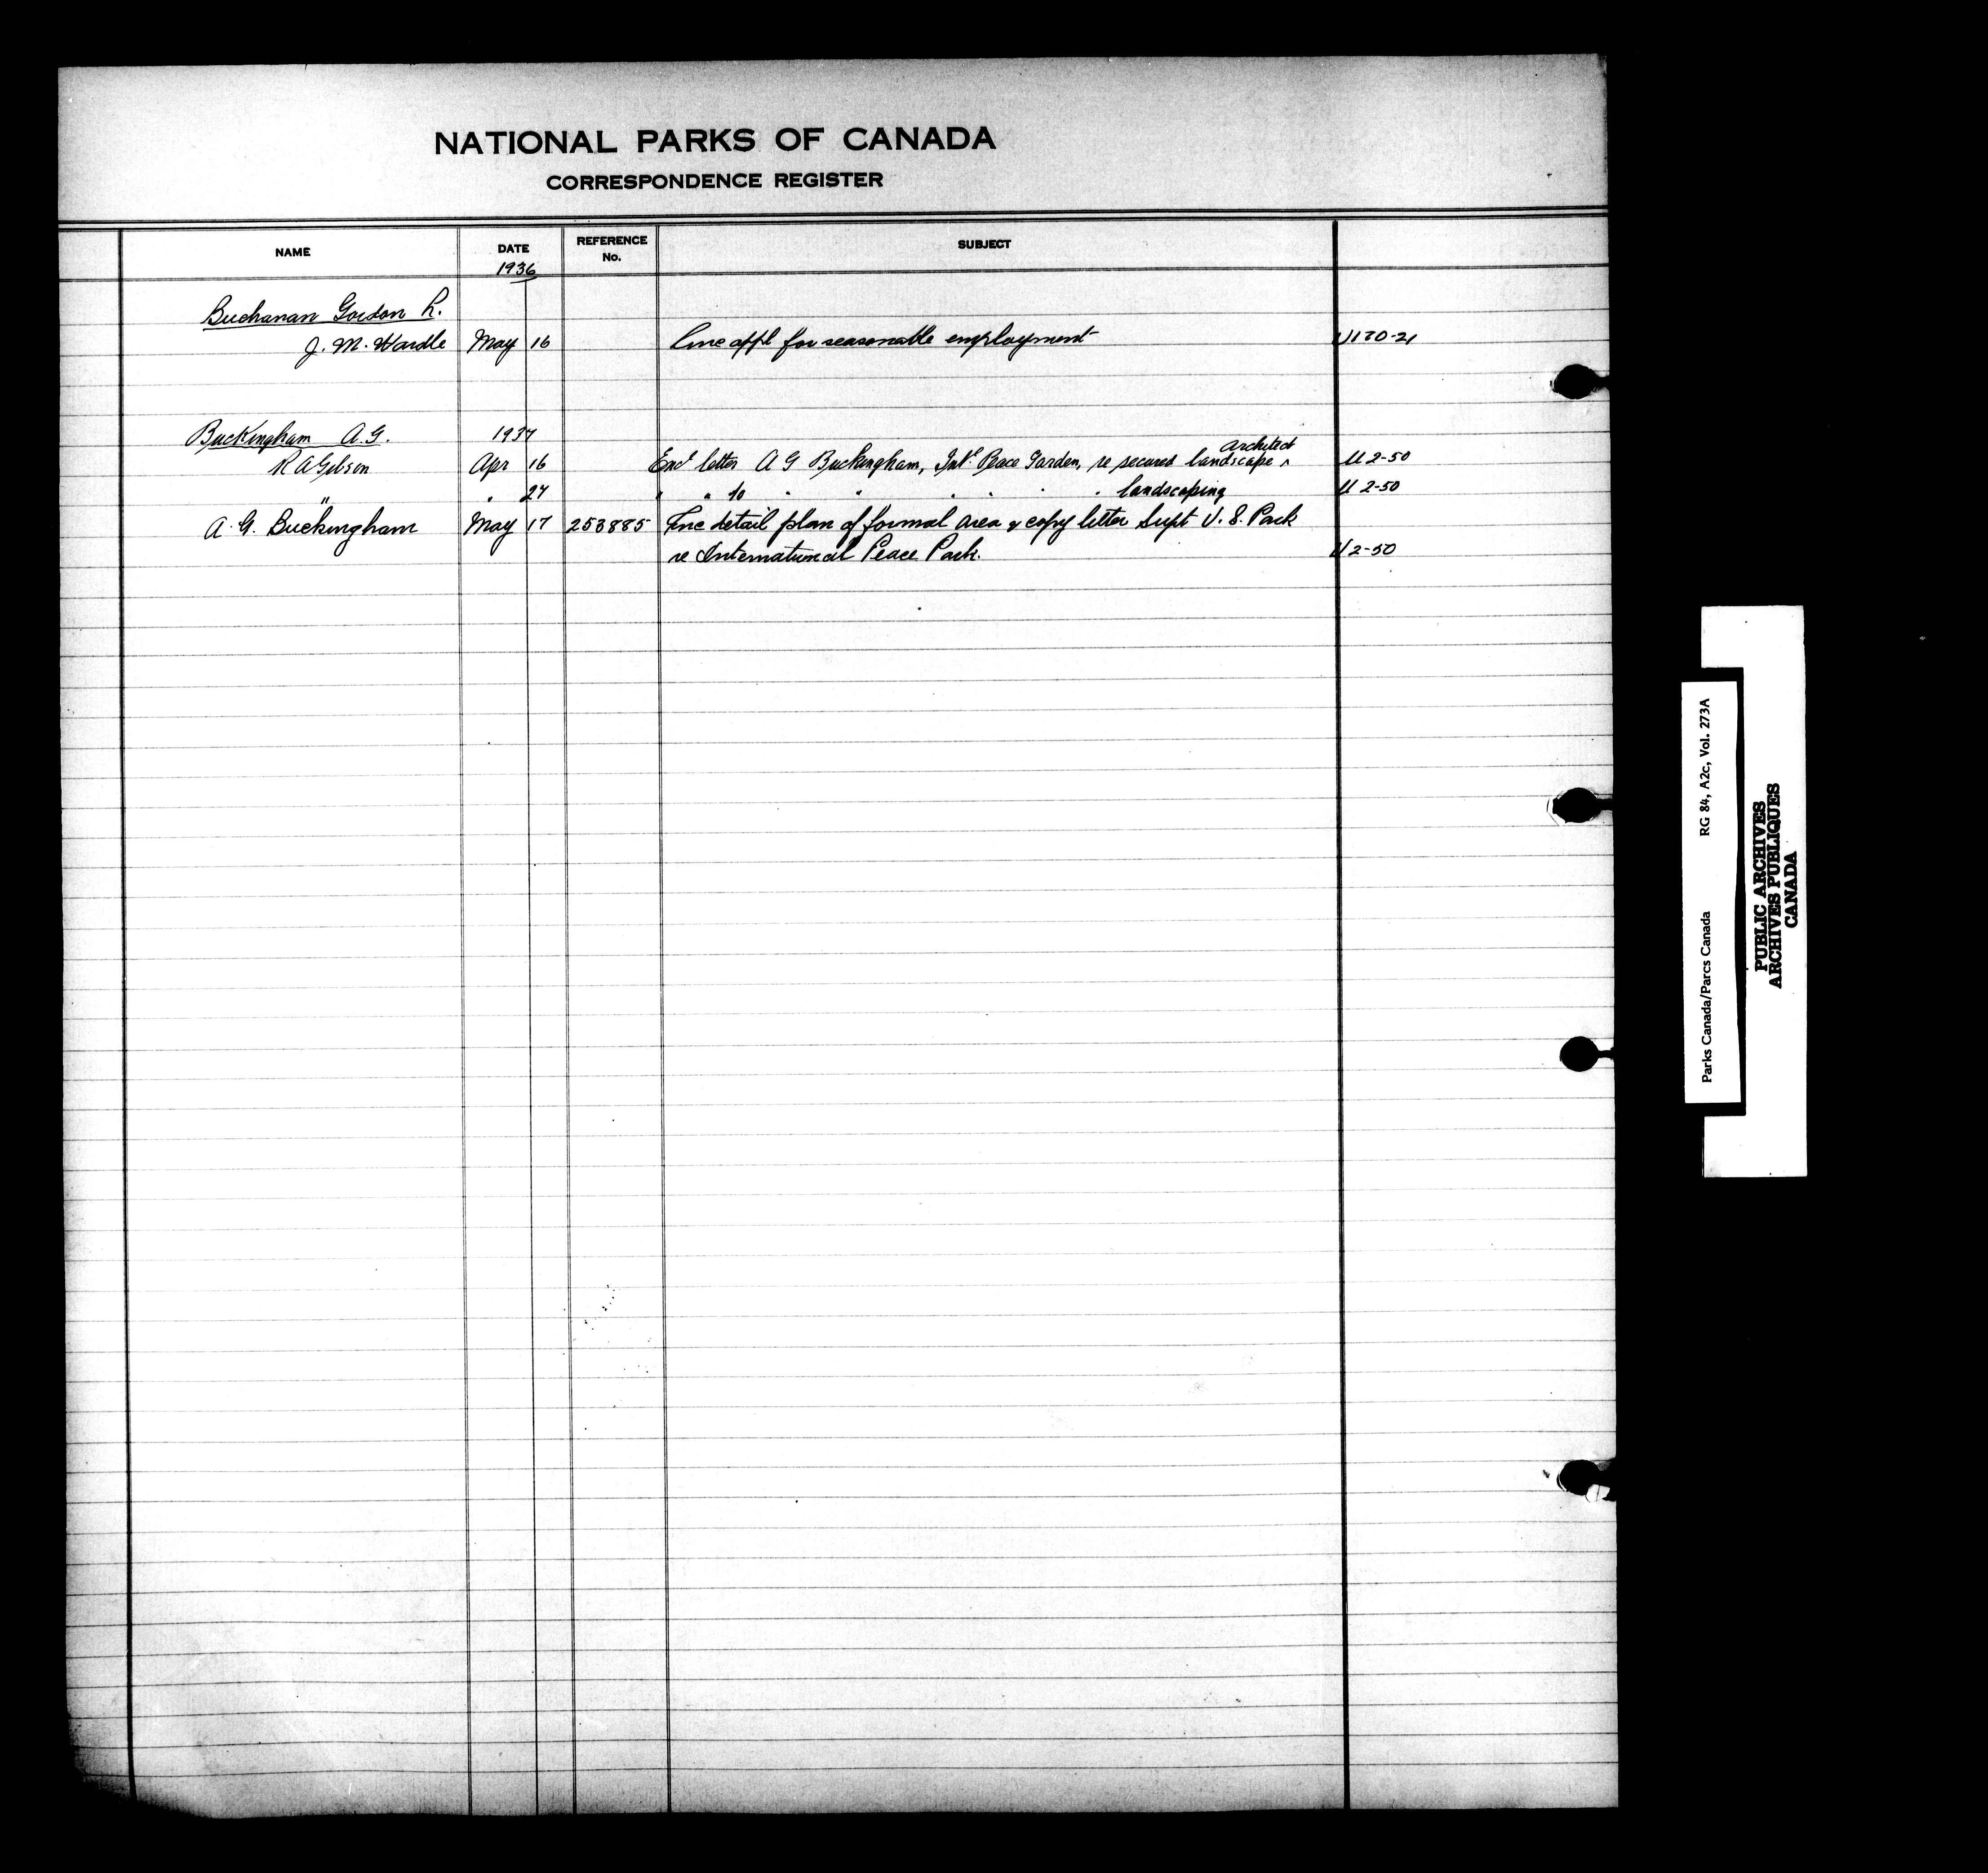 NATIONAL PARKS OF CANADA
CORRESPONDENCE REGISTER
NAME DATE REFERENCE No. SUBJECT
1936
Buchanan Gordon R.
J. M. Wardle May 16 Enc appl for seasonable employment U120-21
Buckingham A.G. 1937
architect
R A Gibson Apr 16 Encl letter A G Buckingham, Intl Peace Garden, re secured landscape ^ U 2-50
" " 27 " " to " " " " " " landscaping U 2-50
A. G. Buckingham May 17 253885 Enc detail plan of formal area & copy letter Supt U. S. Park
re International Peace Park. U 2-50
Parks Canada/Parcs Canada RG 84, A2c, Vol. 273A
PUBLIC ARCHIVES
ARCHIVES PUBLIQUES
CANADA